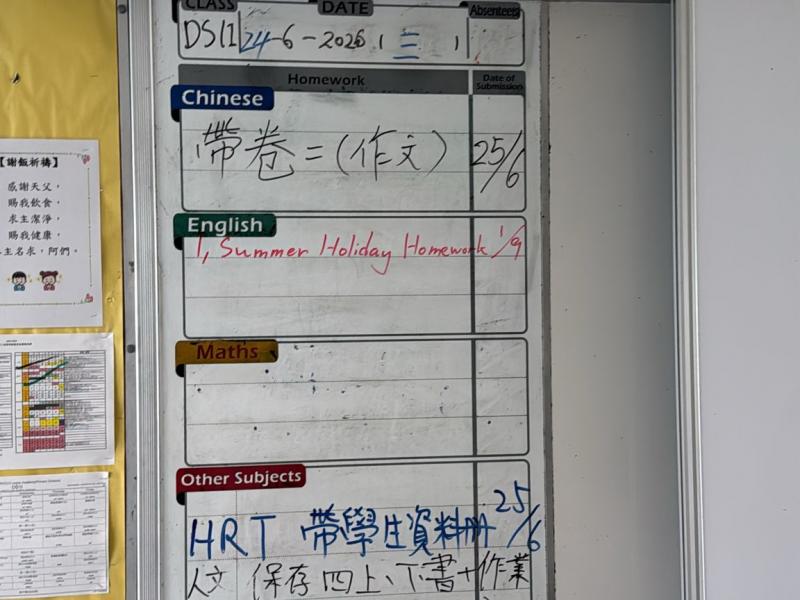 CLASS DATE Absentees
DS11 24-6-2026 (三)
Homework Date of Submission
Chinese
帶卷=(作文) 25/6
English
1, Summer Holiday Homework 1/9
Maths
Other Subjects
HRT 帶學生資料册 25/6
人文 保存四上、下書+作業
【謝飯祈禱】
感謝天父，
賜我飲食，
求主潔淨，
賜我健康，
主名求，阿們。